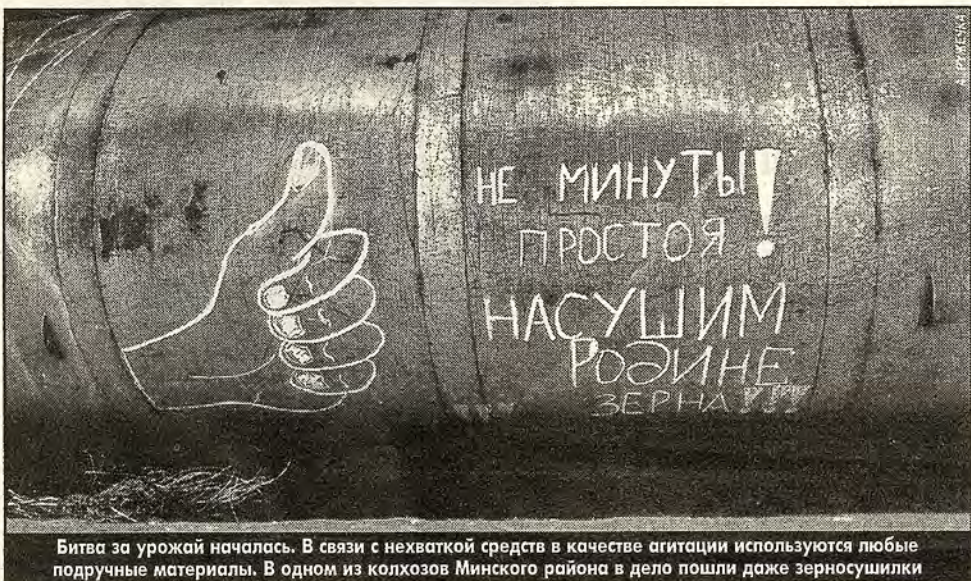 НЕ МИНУТЫ!
ПРОСТОЯ
НАСУШИМ
РОДИНЕ
ЗЕРНА!!!
Битва за урожай началась. В связи с нехваткой средств в качестве агитации используются любые
подручные материалы. В одном из колхозов Минского района в дело пошли даже зерносушилки